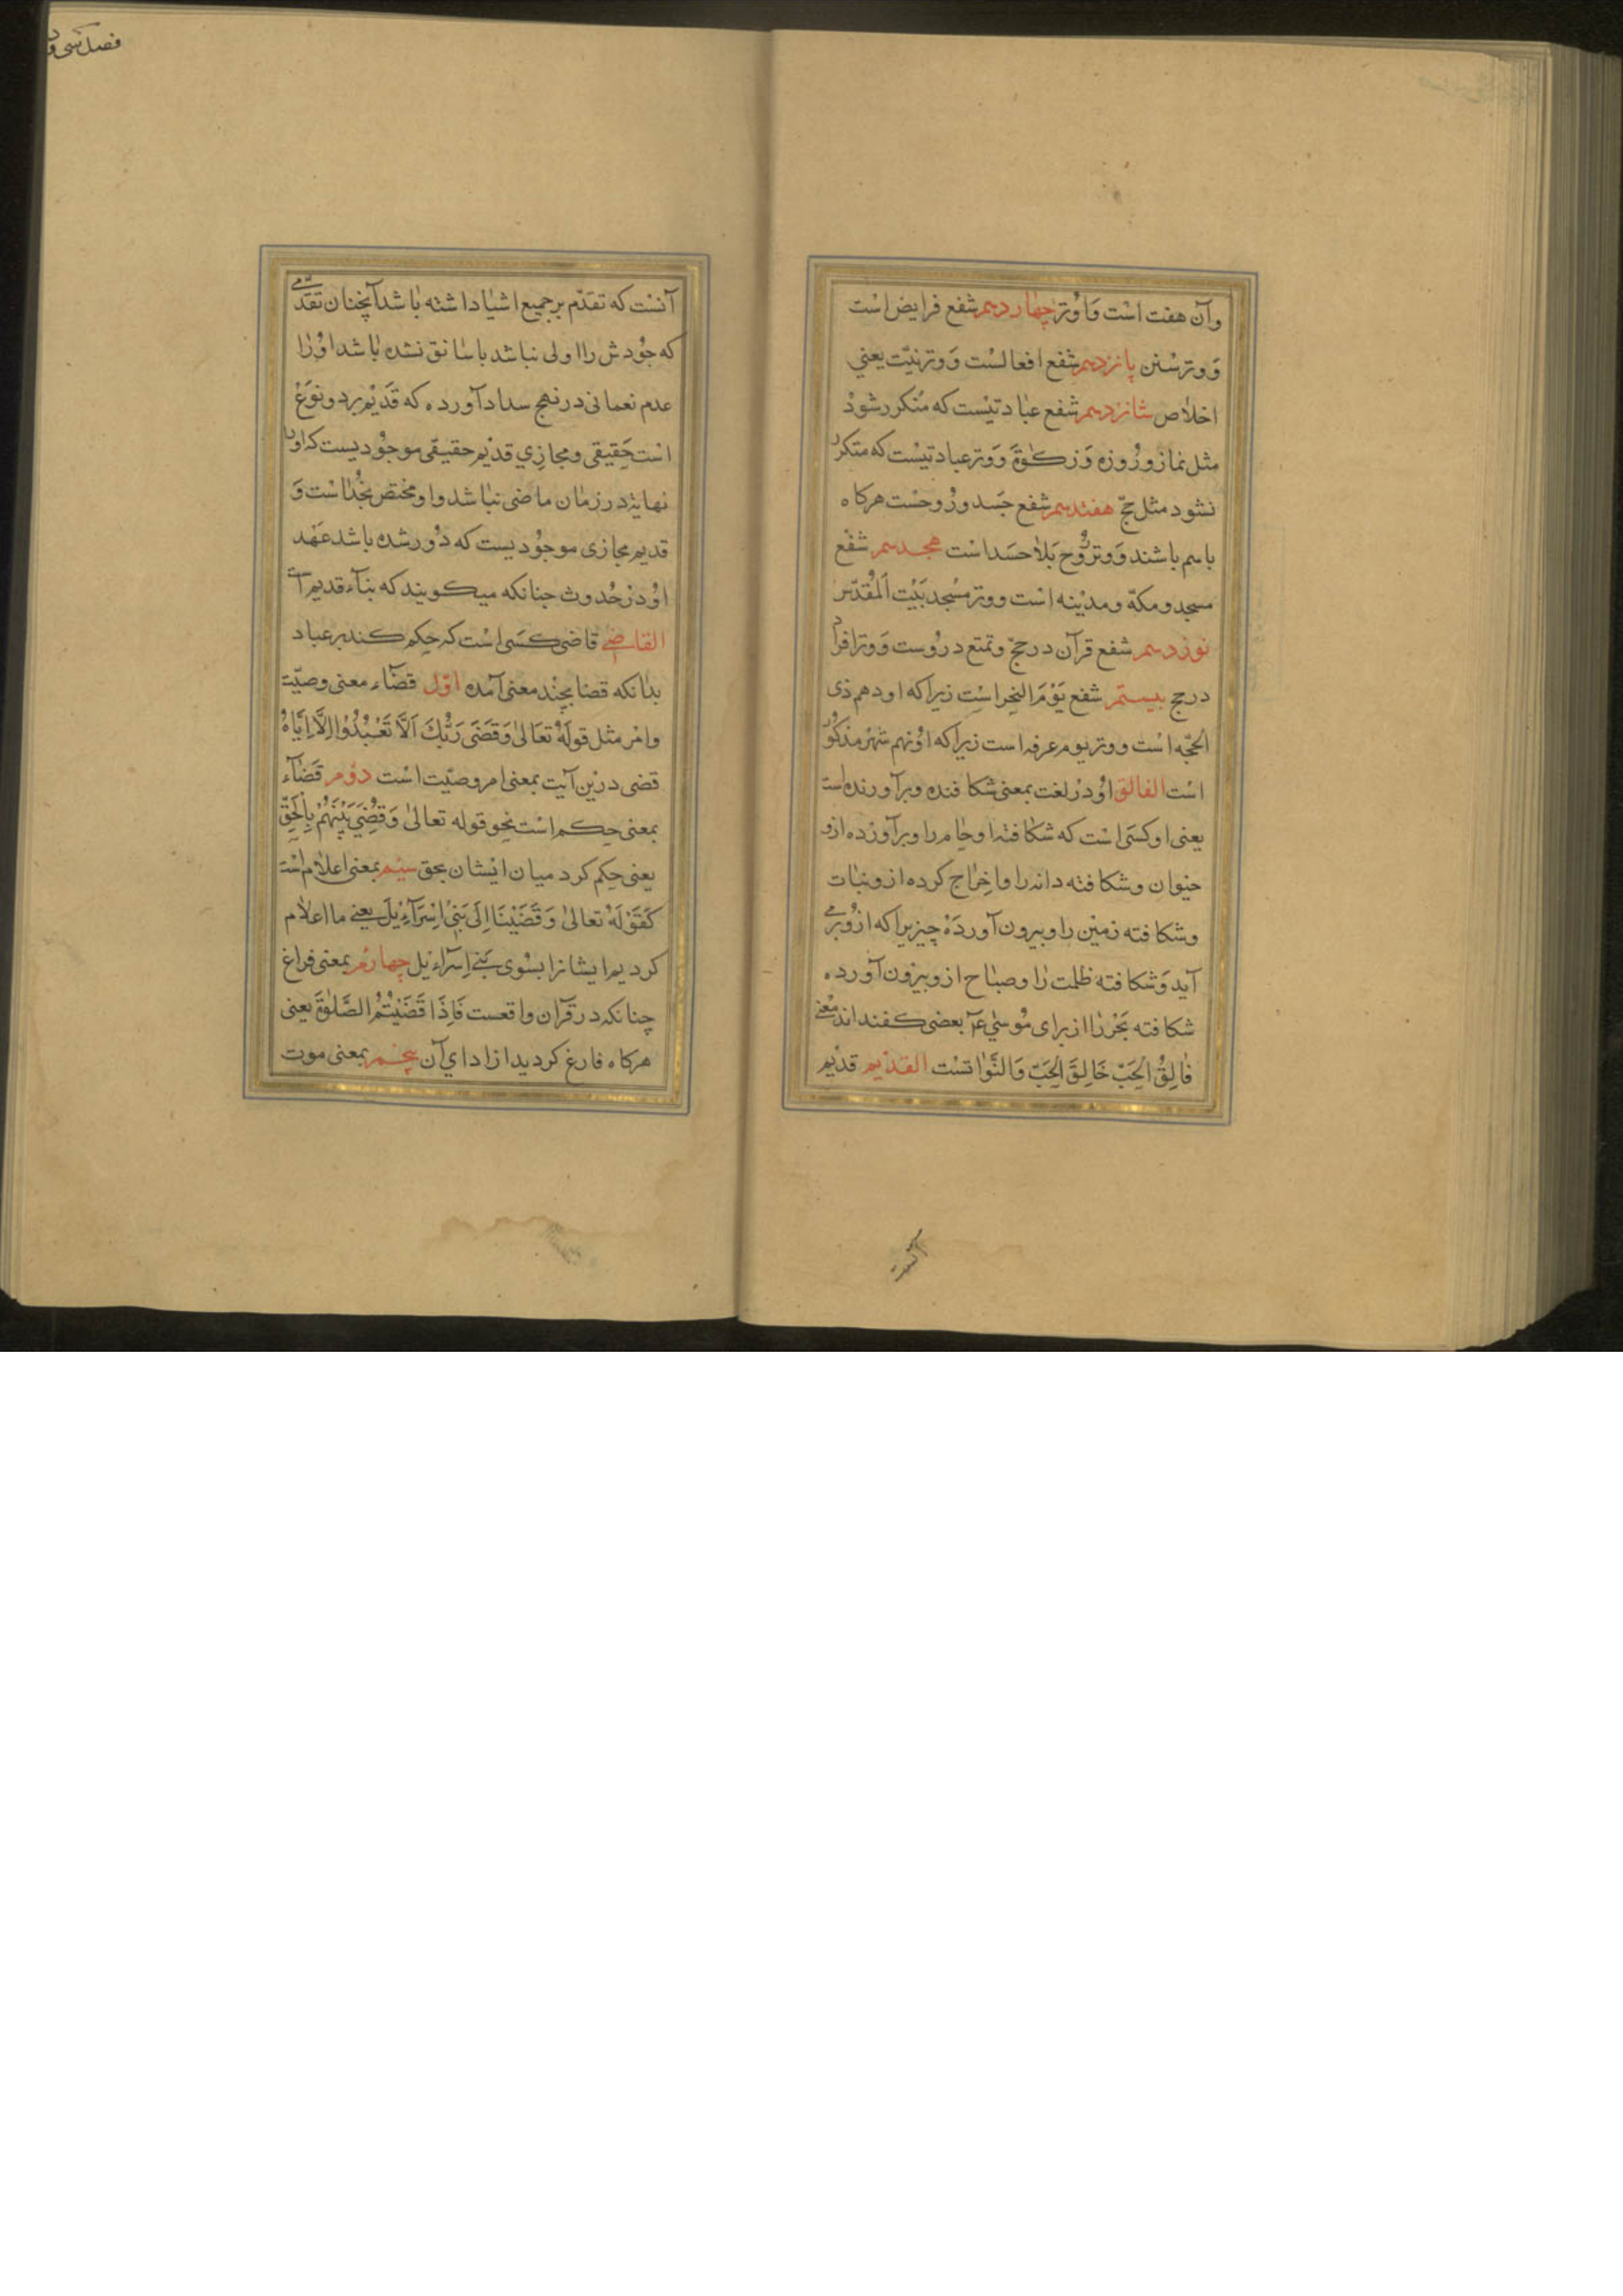 وآن هفت است وَاوُتر چهاردهم شفع فرایض است
وَوترسُنن پانزدهم شفع افعالست وَوترنیّت یعنی
اخلاص شانزدهم شفع عبادتیست که متکرر شودْ
مثل نماز وروزه وَزکوٰة وَوتر عبادتیست که متکرر
نشود مثل حجّ هفتدهم شفع جَسد ورُوحست هرکاه
باسم باشند وَوتر رُوح بَلاٰ حسَد است هجدهم شفع
مسجد ومکهّ ومدیْنه است ووتر مسْجد بَیْت اَلمُقدّس
نوزدهم شفع قرآن درحجّ وتمتع دروُست وَوتر افراد
درحج بیستم شفع یَوْمَ النحِر اسْت زیراکه اودهم ذی
الحجّه است ووتر یوم عرفه است زیراکه اوُنهم شهْر مذکوُر
اسْت الفالق اوُدرْ لغت بمعنی شکافنده وبرآورنده است
یعنی اوکسَی اسْت که شکافته اوحٰام را وبرآورْده ازو
حیْوان وشکافته دانه را واخِرٰاج کرده ازونبٰات
وشکافته زمیْن راوبیرون آوردَهْ چیزیراکه ازوُبرمی
آید وَشکافته ظلمت رٰا وصبٰاح ازوبیرْون آورده
شکافته بَحْر رٰا از برای مُوسٰی عم بعضی کفته‌اند معْنی
فٰالِقُ الحَبّ خَالِقَ الحَبّ وَالنَّوٰاتسْت القدْیم قدْیم
آنسْت که تقدّم برجمیع اشیٰا داشته بٰاشد آنچنان تقدّمی
که جوُدش را اولی نباشد باسابق نشده بٰاشد اوُرٰا
عدم نعمانی درنهج سداد آورده که قَدیْم بردونوَعْ
اسْت حَقیقی ومجازِی قدیْم حقیقی موجوُدیست که اورا
نهایة درزمٰان ماضی نبٰاشد واومختص بخُدٰاسْت وَ
قدیم مجازی موجوُدیست که دوُرشده باشد عَهْد
اوُدرْحُدوث جنانکه میکویند که بنآء قدیم است
القاضی قاضی کسَی اسْت که حِکم کند برعباد
بدٰانکه قضا بچنْد معنی آمده اوّل قضآء معنی وصیّت
وامْر مثل قولَهُ تعَالیٰ وَقَضَی رَبُّكَ اَلَّا تَعْبُدُوْا اِلَّا اِیَّاهُ
قضی درْین آیت بمعنی امر وصیّت اسْت دوُم قَضٰآء
بمعنی حِکم اسْت نحو قوله تعالیٰ وَقُضِیَ بَیْنَهُمْ بِالْحَقِّ
یعنی حِکم کرد میان ایْشان بحق سیُم بمعنی اعلاٰم اسْت
کَقَوْلَهُ تعالیٰ وَقَضَیْنَا اِلَی بَنِیْ اِسْرَآءِیْلَ یعنی ما اعلاٰم
کردیم ایشانرا بسُوی بَنی اِسرآءیل چهارُم بمعنی فراغ
چنانکه درقرآن واقعست فَاِذَا قَضَیْتُمُ الصَّلٰوةَ یعنی
هرکاه فارغ کردید از ادای آن پنجم بمعنی موت
آنست